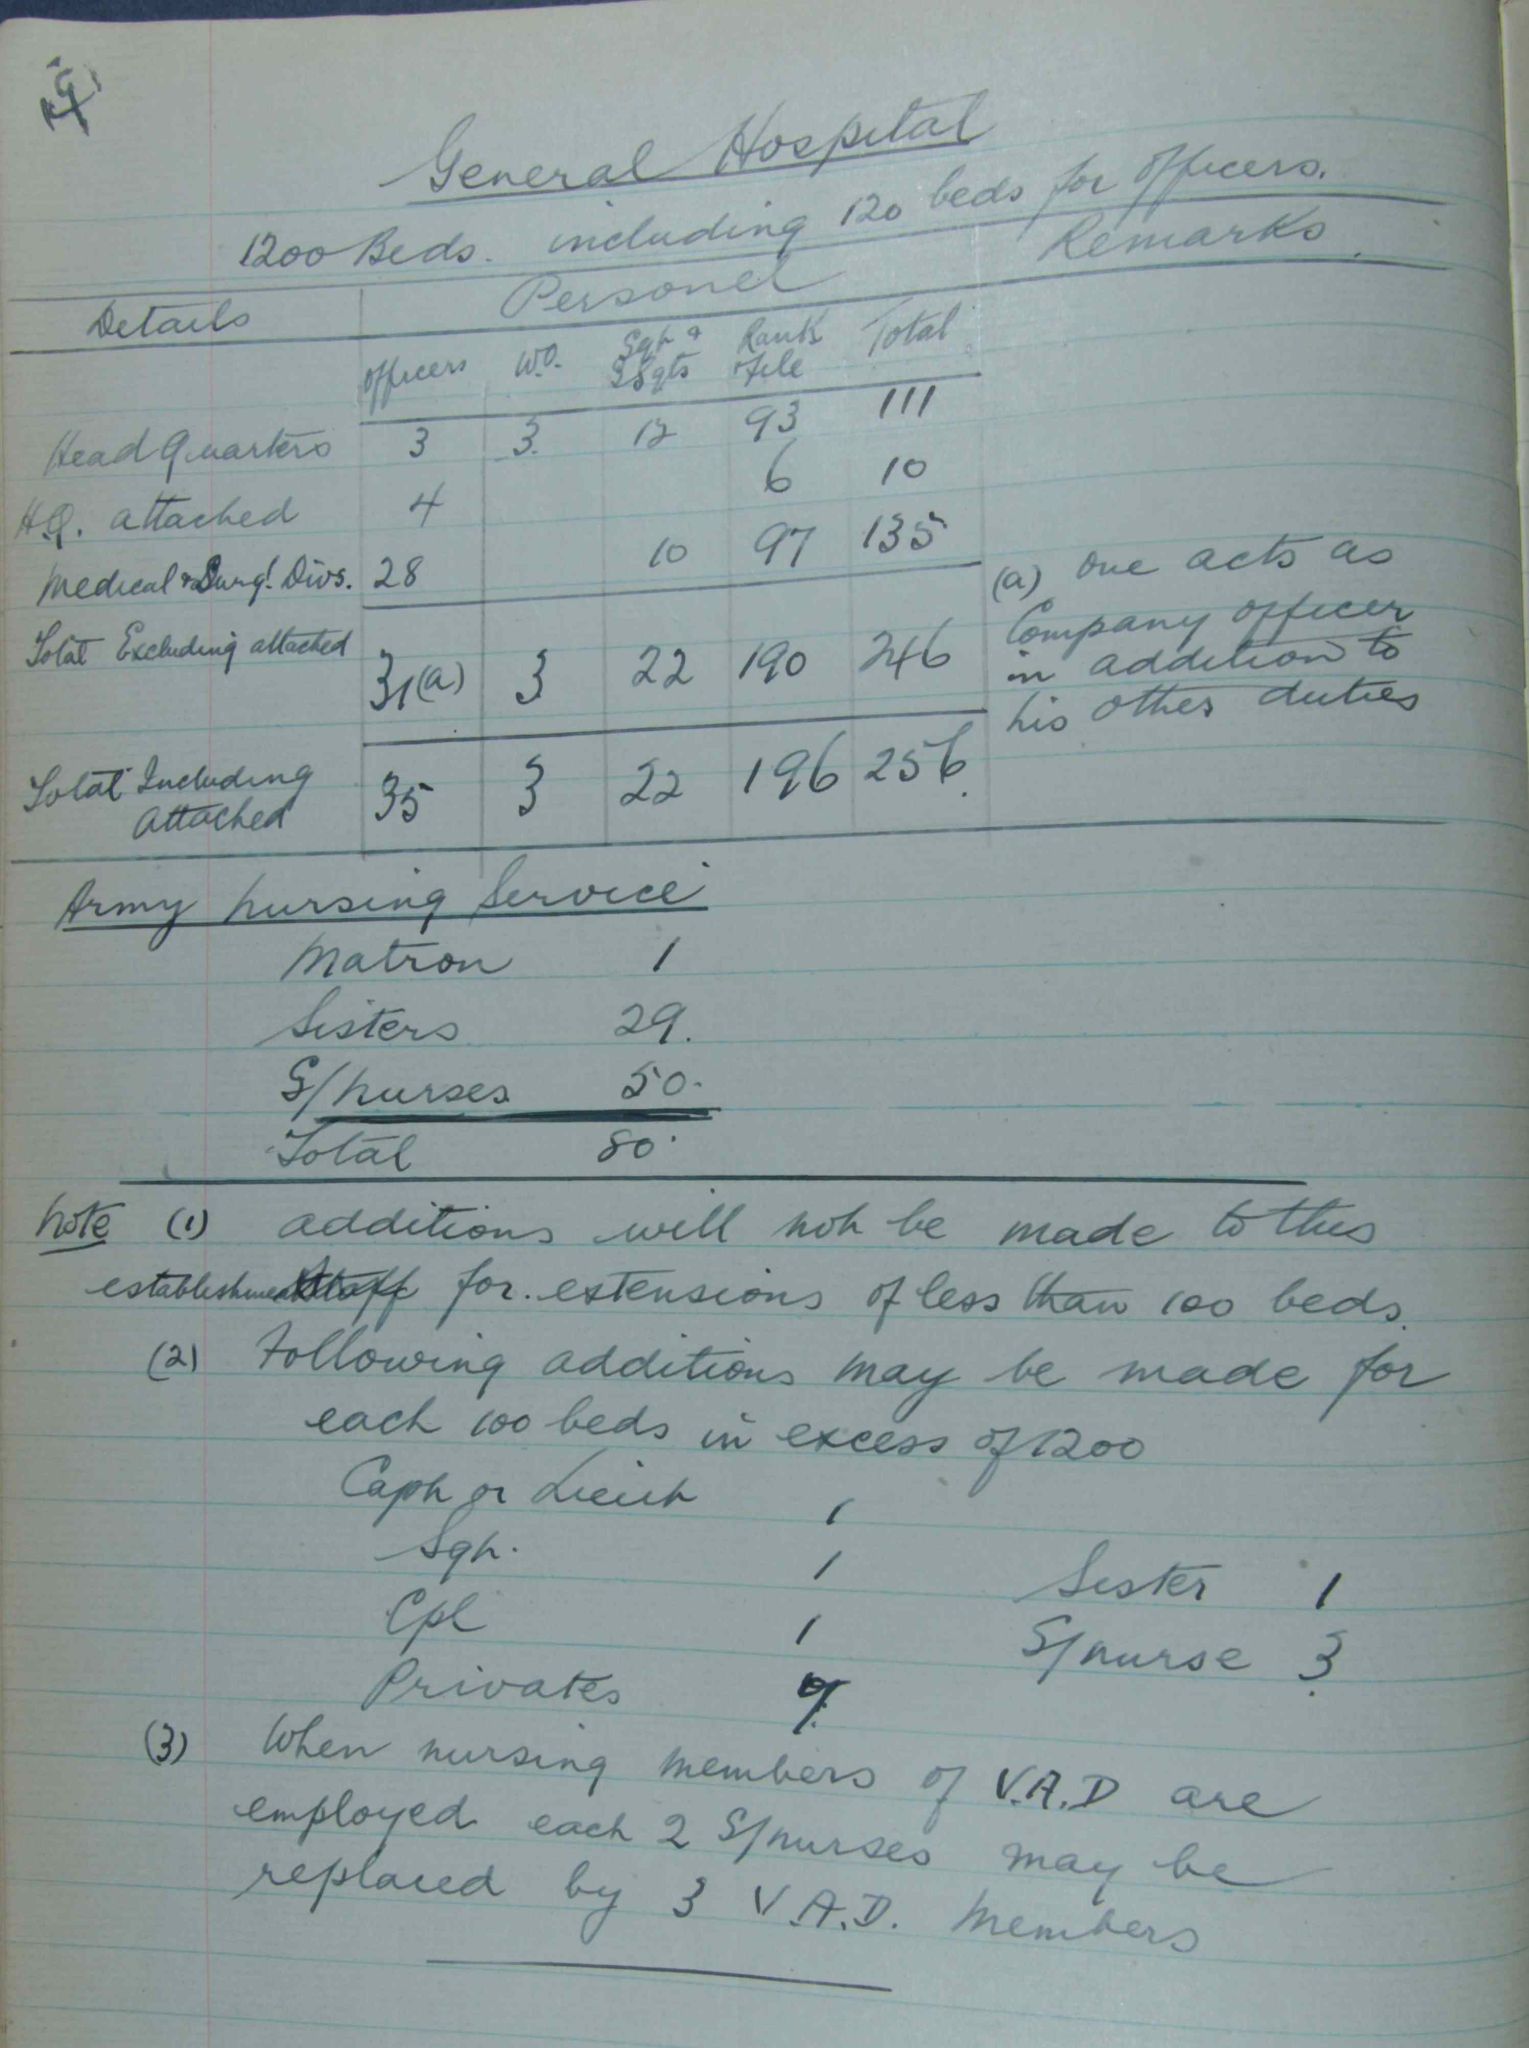 General Hospital
1200 Beds. including 120 beds for officers.
Details Personel Remarks
Officers W.O. Sgt & S Sgts Rank & File Total
Head Quarters 3 3 12 93 111
H.Q. attached 4 6 10
Medical & Surgl. Divs. 28 10 97 135
Total Excluding attached 31(a) 3 22 190 246
Total Including attached 35 3 22 196 256
(a) One acts as
Company officer
in addition to
his other duties
Army Nursing Service
Matron 1
Sisters 29.
S/nurses 50.
Total 80.
Note (1) additions will not be made to this
establishment for extensions of less than 100 beds.
(2) Following additions may be made for
each 100 beds in excess of 1200
Capt or Lieut 1
Sgt. 1
Cpl 1
Privates
Sister 1
S/nurse 3
(3) When nursing members of V.A.D are
employed each 2 S/nurses may be
replaced by 3 V.A.D. Members